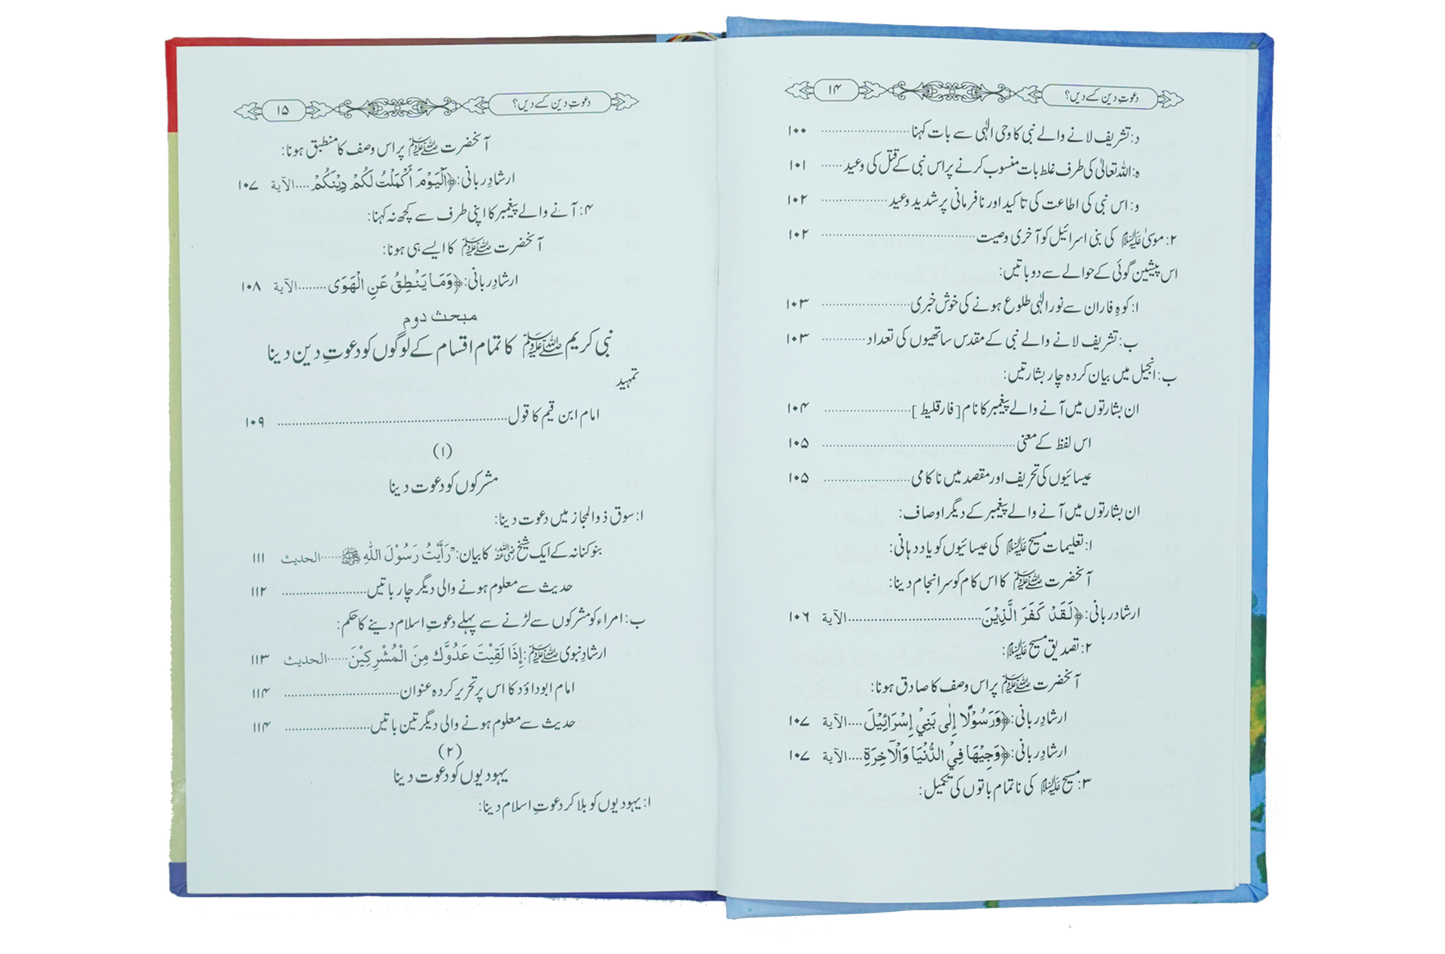 دعوتِ دین کسے دیں؟ ۱۴
د: تشریف لانے والے نبی کا وحی الٰہی سے بات کہنا ........ ۱۰۰
ہ: اللہ تعالیٰ کی طرف غلط بات منسوب کرنے پر اس نبی کے قتل کی وعید ...... ۱۰۱
و: اس نبی کی اطاعت کی تاکید اور نافرمانی پر شدید وعید ........ ۱۰۲
۲: موسیٰ علیہ السلام کی بنی اسرائیل کو آخری وصیت ........ ۱۰۲
اس پیشین گوئی کے حوالے سے دو باتیں:
ا: کوہِ فاران سے نور الٰہی طلوع ہونے کی خوش خبری ........ ۱۰۳
ب: تشریف لانے والے نبی کے مقدس ساتھیوں کی تعداد ........ ۱۰۳
ب: انجیل میں بیان کردہ چار بشارتیں:
ان بشارتوں میں آنے والے پیغمبر کا نام [فارقلیط] ........ ۱۰۴
اس لفظ کے معنی ........ ۱۰۵
عیسائیوں کی تحریف اور مقصد میں ناکامی ........ ۱۰۵
ان بشارتوں میں آنے والے پیغمبر کے دیگر اوصاف:
۱: تعلیمات مسیح علیہ السلام کی عیسائیوں کو یاد دہانی:
آنحضرت ﷺ کا اس کام کو سرانجام دینا:
ارشادِ ربانی: ﴿لَقَدْ كَفَرَ الَّذِيْنَ ........ الآیة ۱۰۶
۲: تصدیق مسیح علیہ السلام:
آنحضرت ﷺ پر اس وصف کا صادق ہونا:
ارشادِ ربانی: ﴿وَرَسُوْلًا إِلٰى بَنِيْ إِسْرَائِيْلَ .... الآیة ۱۰۷
ارشادِ ربانی: ﴿وَجِيْهًا فِيْ الدُّنْيَا وَالْآخِرَةِ .... الآیة ۱۰۷
۳: مسیح علیہ السلام کی ناتمام باتوں کی تکمیل:
دعوتِ دین کسے دیں؟ ۱۵
آنحضرت ﷺ پر اس وصف کا منطبق ہونا:
ارشادِ ربانی: ﴿اَلْيَوْمَ أَكْمَلْتُ لَكُمْ دِيْنَكُمْ .... الآیة ۱۰۷
۴: آنے والے پیغمبر کا اپنی طرف سے کچھ نہ کہنا:
آنحضرت ﷺ کا ایسے ہی ہونا:
ارشادِ ربانی: ﴿وَمَا يَنْطِقُ عَنِ الْهَوَى ........ الآیة ۱۰۸
مبحث دوم
نبی کریم ﷺ کا تمام اقسام کے لوگوں کو دعوتِ دین دینا
تمہید
امام ابن قیم کا قول ........ ۱۰۹
(۱)
مشرکوں کو دعوت دینا
ا: سوق ذوالمجاز میں دعوت دینا:
بنو کنانہ کے ایک شیخ رضی اللہ عنہ کا بیان: ”رَأَيْتُ رَسُوْلَ اللّٰهِ ﷺ ..... الحدیث ۱۱۱
حدیث سے معلوم ہونے والی دیگر چار باتیں ........ ۱۱۲
ب: امراء کو مشرکوں سے لڑنے سے پہلے دعوتِ اسلام دینے کا حکم:
ارشادِ نبوی ﷺ: إِذَا لَقِيْتَ عَدُوَّكَ مِنَ الْمُشْرِكِيْنَ ..... الحدیث ۱۱۳
امام ابوداؤد کا اس پر تحریر کردہ عنوان ........ ۱۱۴
حدیث سے معلوم ہونے والی دیگر تین باتیں ........ ۱۱۴
(۲)
یہودیوں کو دعوت دینا
ا: یہودیوں کو بلا کر دعوتِ اسلام دینا: